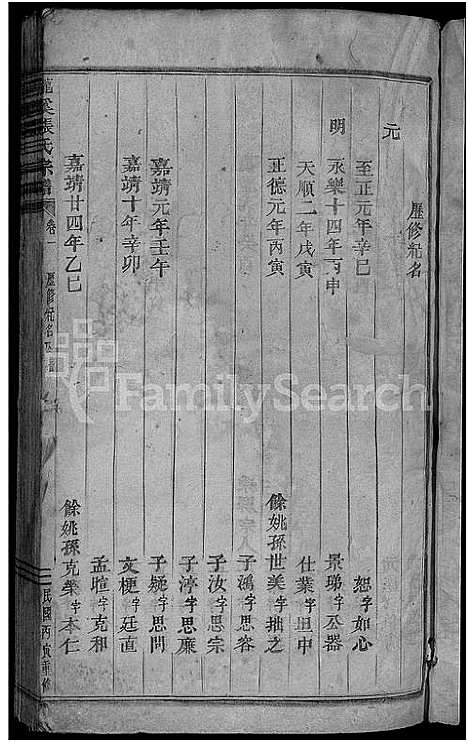 歷修紀名
元
至正元年辛巳
恕字如心
明
永樂十四年丙申
景瑒字丕器
天順二年戊寅
仕業字甲申
正德元年丙寅
餘姚孫世美字拙之
子鴻字思容
子汝字思宗
子渟字思廉
嘉靖元年壬午
子疑字思問
嘉靖十年辛卯
文梗字廷直
孟暄字克和
嘉靖廿四年乙巳
餘姚孫克榮字本仁
張氏宗譜
卷一
歷修紀名
民國丙寅重修
FamilySearch